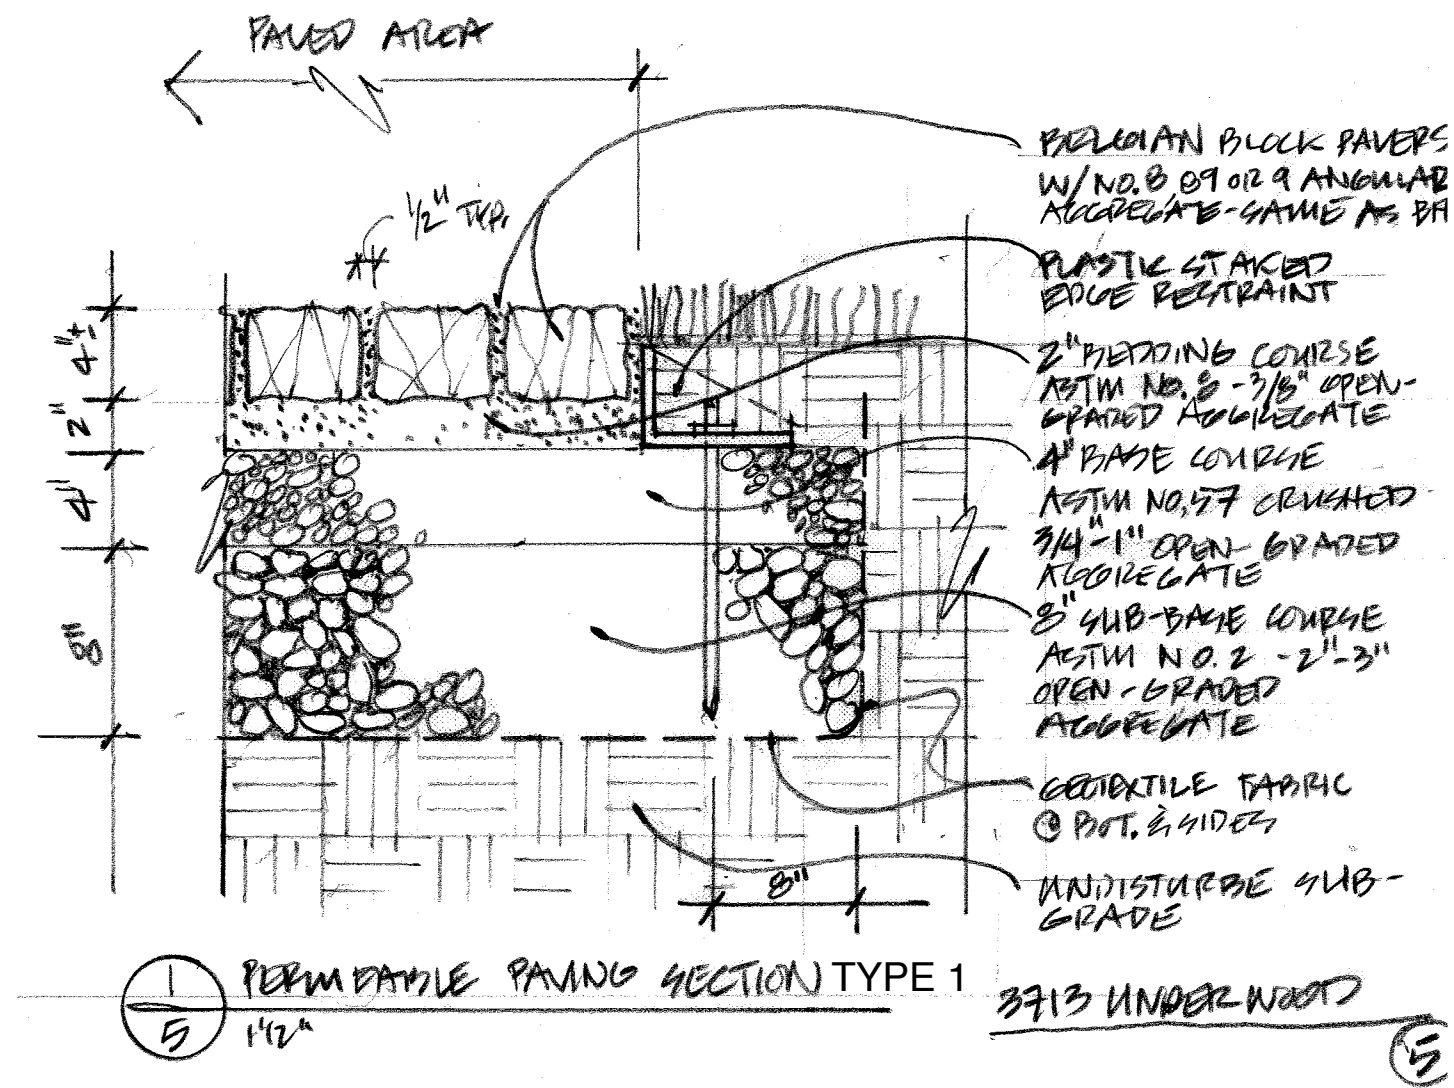 PAVED AREA
1/2" TYP.
4"±
2"
4"
8"
BELGIAN BLOCK PAVERS
W/ NO. 8 89 OR 9 ANGULAR
AGGREGATE-SAME AS
PLASTIC STAKED
EDGE RESTRAINT
2" BEDDING COURSE
ASTM NO. 8 - 3/8" OPEN-
GRADED AGGREGATE
4" BASE COURSE
ASTM NO. 57 CRUSHED
3/4"-1" OPEN-GRADED
AGGREGATE
8" SUB-BASE COURSE
ASTM NO. 2 - 2"-3"
OPEN-GRADED
AGGREGATE
GEOTEXTILE FABRIC
@ BOT. & SIDES
UNDISTURBE SUB-
GRADE
8"
1
5
PERMEABLE PAVING SECTION TYPE 1
1 1/2"
3713 UNDERWOOD
5